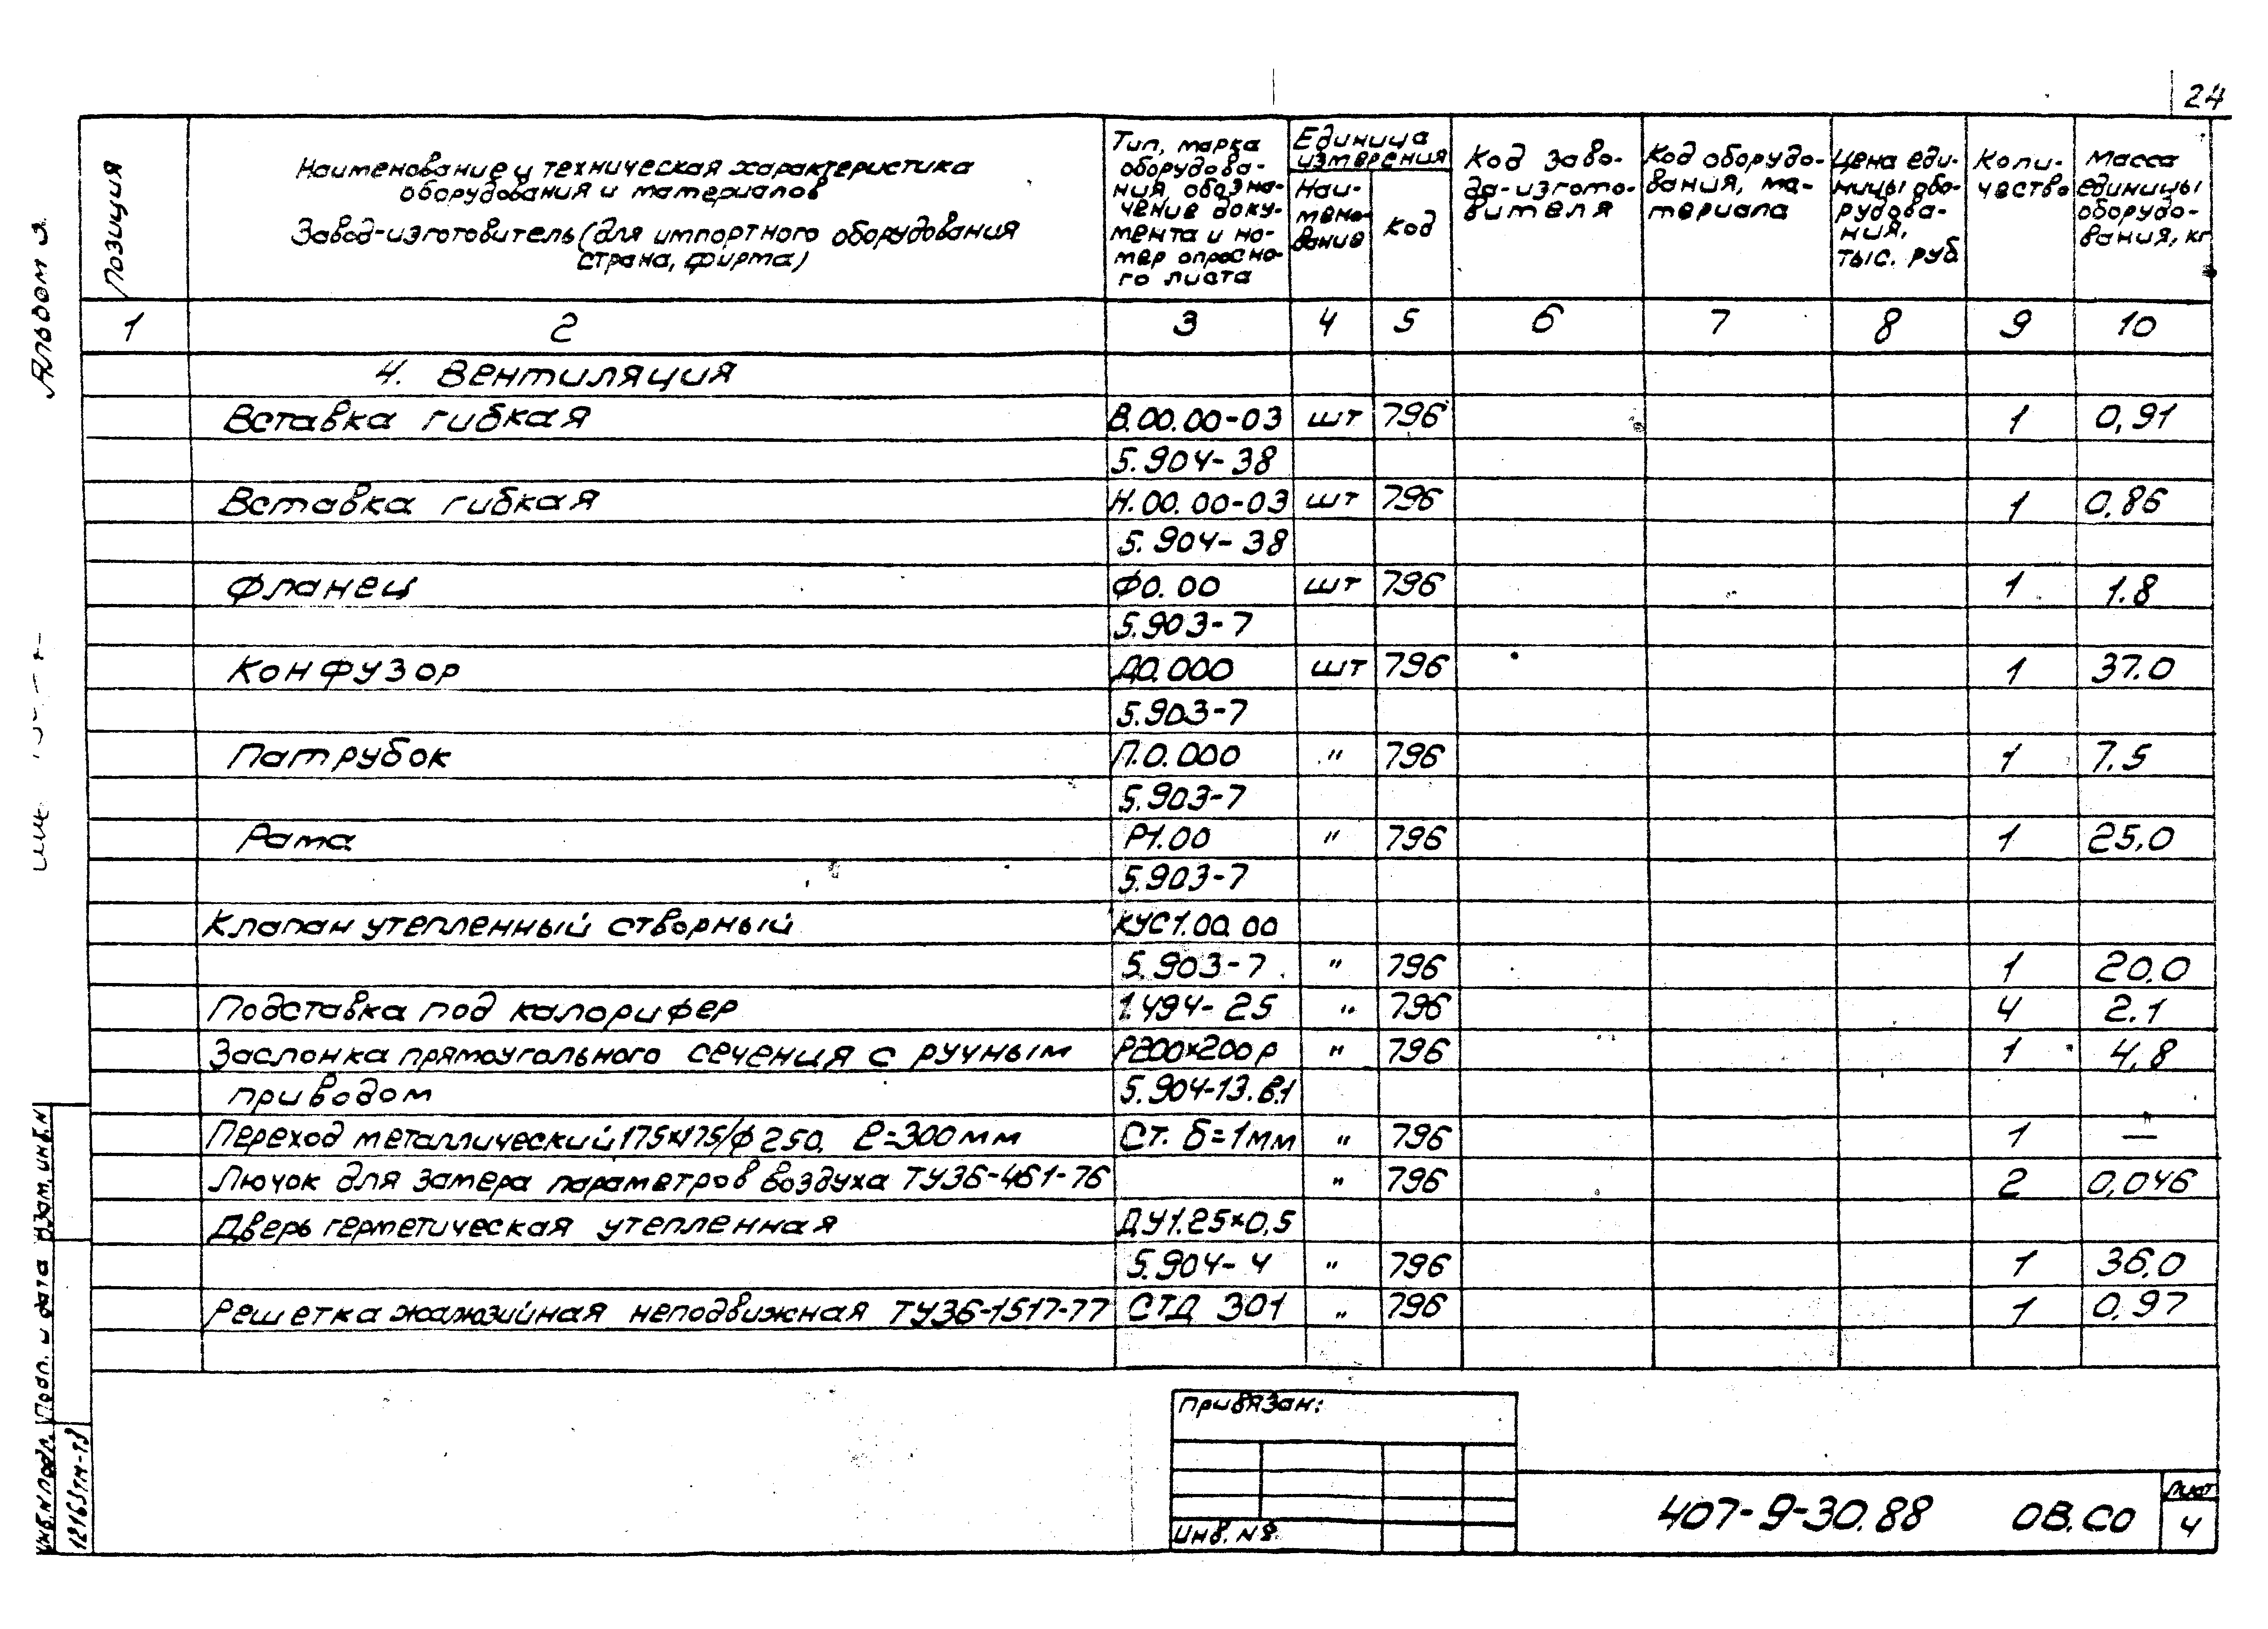 24
Альбом 3.
Позиция
Наименование и техническая характеристика
оборудования и материалов
Завод-изготовитель (для импортного оборудования
страна, фирма)
Тип, марка
оборудова-
ния, обозна-
чение доку-
мента и но-
мер опросно-
го листа
Единица
измерения
Наи-
мено-
вание
Код
Код заво-
да-изгото-
вителя
Код оборудо-
вания, ма-
териала
Цена еди-
ницы обо-
рудова-
ния,
тыс. руб
Коли-
чество
Масса
единицы
оборудо-
вания, кг
1 2 3 4 5 6 7 8 9 10
4. Вентиляция
Вставка гибкая В.00.00-03 шт 796 1 0,91
5.904-38
Вставка гибкая Н.00.00-03 шт 796 1 0.86
5.904-38
Фланец Ф0.00 шт 796 1 1.8
5.903-7
Конфузор Д0.000 шт 796 1 37.0
5.903-7
Патрубок П.0.000 " 796 1 7.5
5.903-7
Рама Р1.00 " 796 1 25,0
5.903-7
Клапан утепленный створный КУС1.00.00
5.903-7 " 796 1 20.0
Подставка под калорифер 1.494-25 " 796 4 2.1
Заслонка прямоугольного сечения с ручным Р200×200Р " 796 1 4,8
приводом 5.904-13.В.1
Переход металлический 175×175/ф250, ℓ=300мм Ст. б=1мм " 796 1 —
Лючок для замера параметров воздуха ТУ36-461-76 " 796 2 0,046
Дверь герметическая утепленная ДУ1.25×0,5
5.904-4 " 796 1 36,0
Решетка жалюзийная неподвижная ТУ36-1517-77 СТД 301 " 796 1 0,97
Привязан:
Инв. №
407-9-30.88 ОВ.СО
Лист
4
Инв.N подл.
Подп. и дата
Взам. инв. N
12163тм-т3